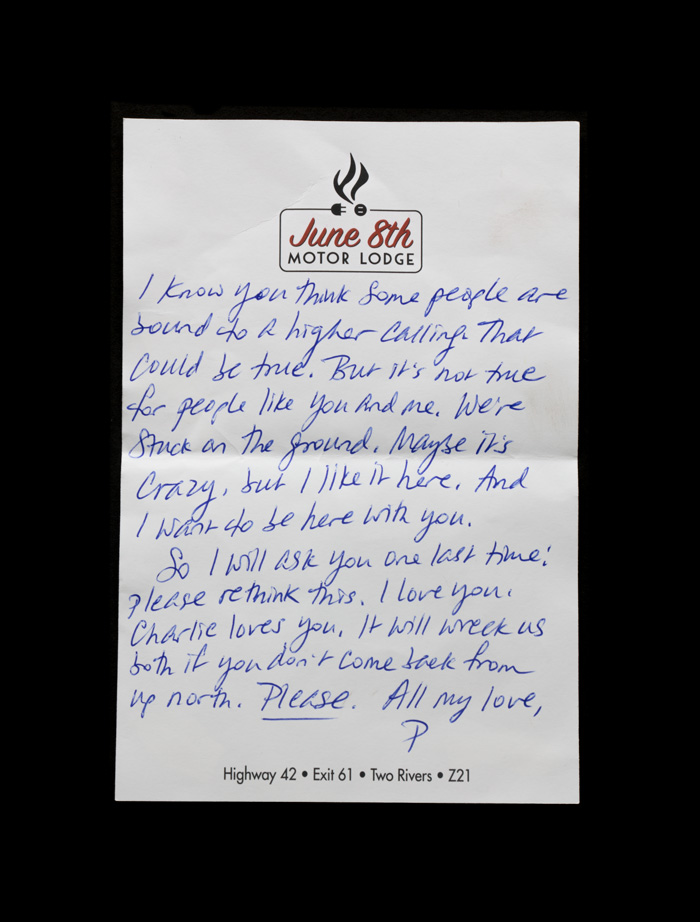 June 8th
MOTOR LODGE
I know you think some people are
bound to a higher calling. That
could be true. But it's not true
for people like you and me. We're
stuck on the ground. Maybe it's
crazy, but I like it here. And
I want to be here with you.
So I will ask you one last time:
Please rethink this. I love you.
Charlie loves you. It will wreck us
both if you don't come back from
up north. Please. All my love,
P
Highway 42 • Exit 61 • Two Rivers • Z21